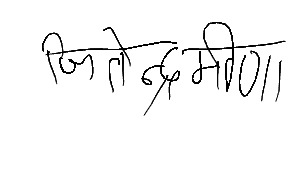 जितेन्द्र मीणा